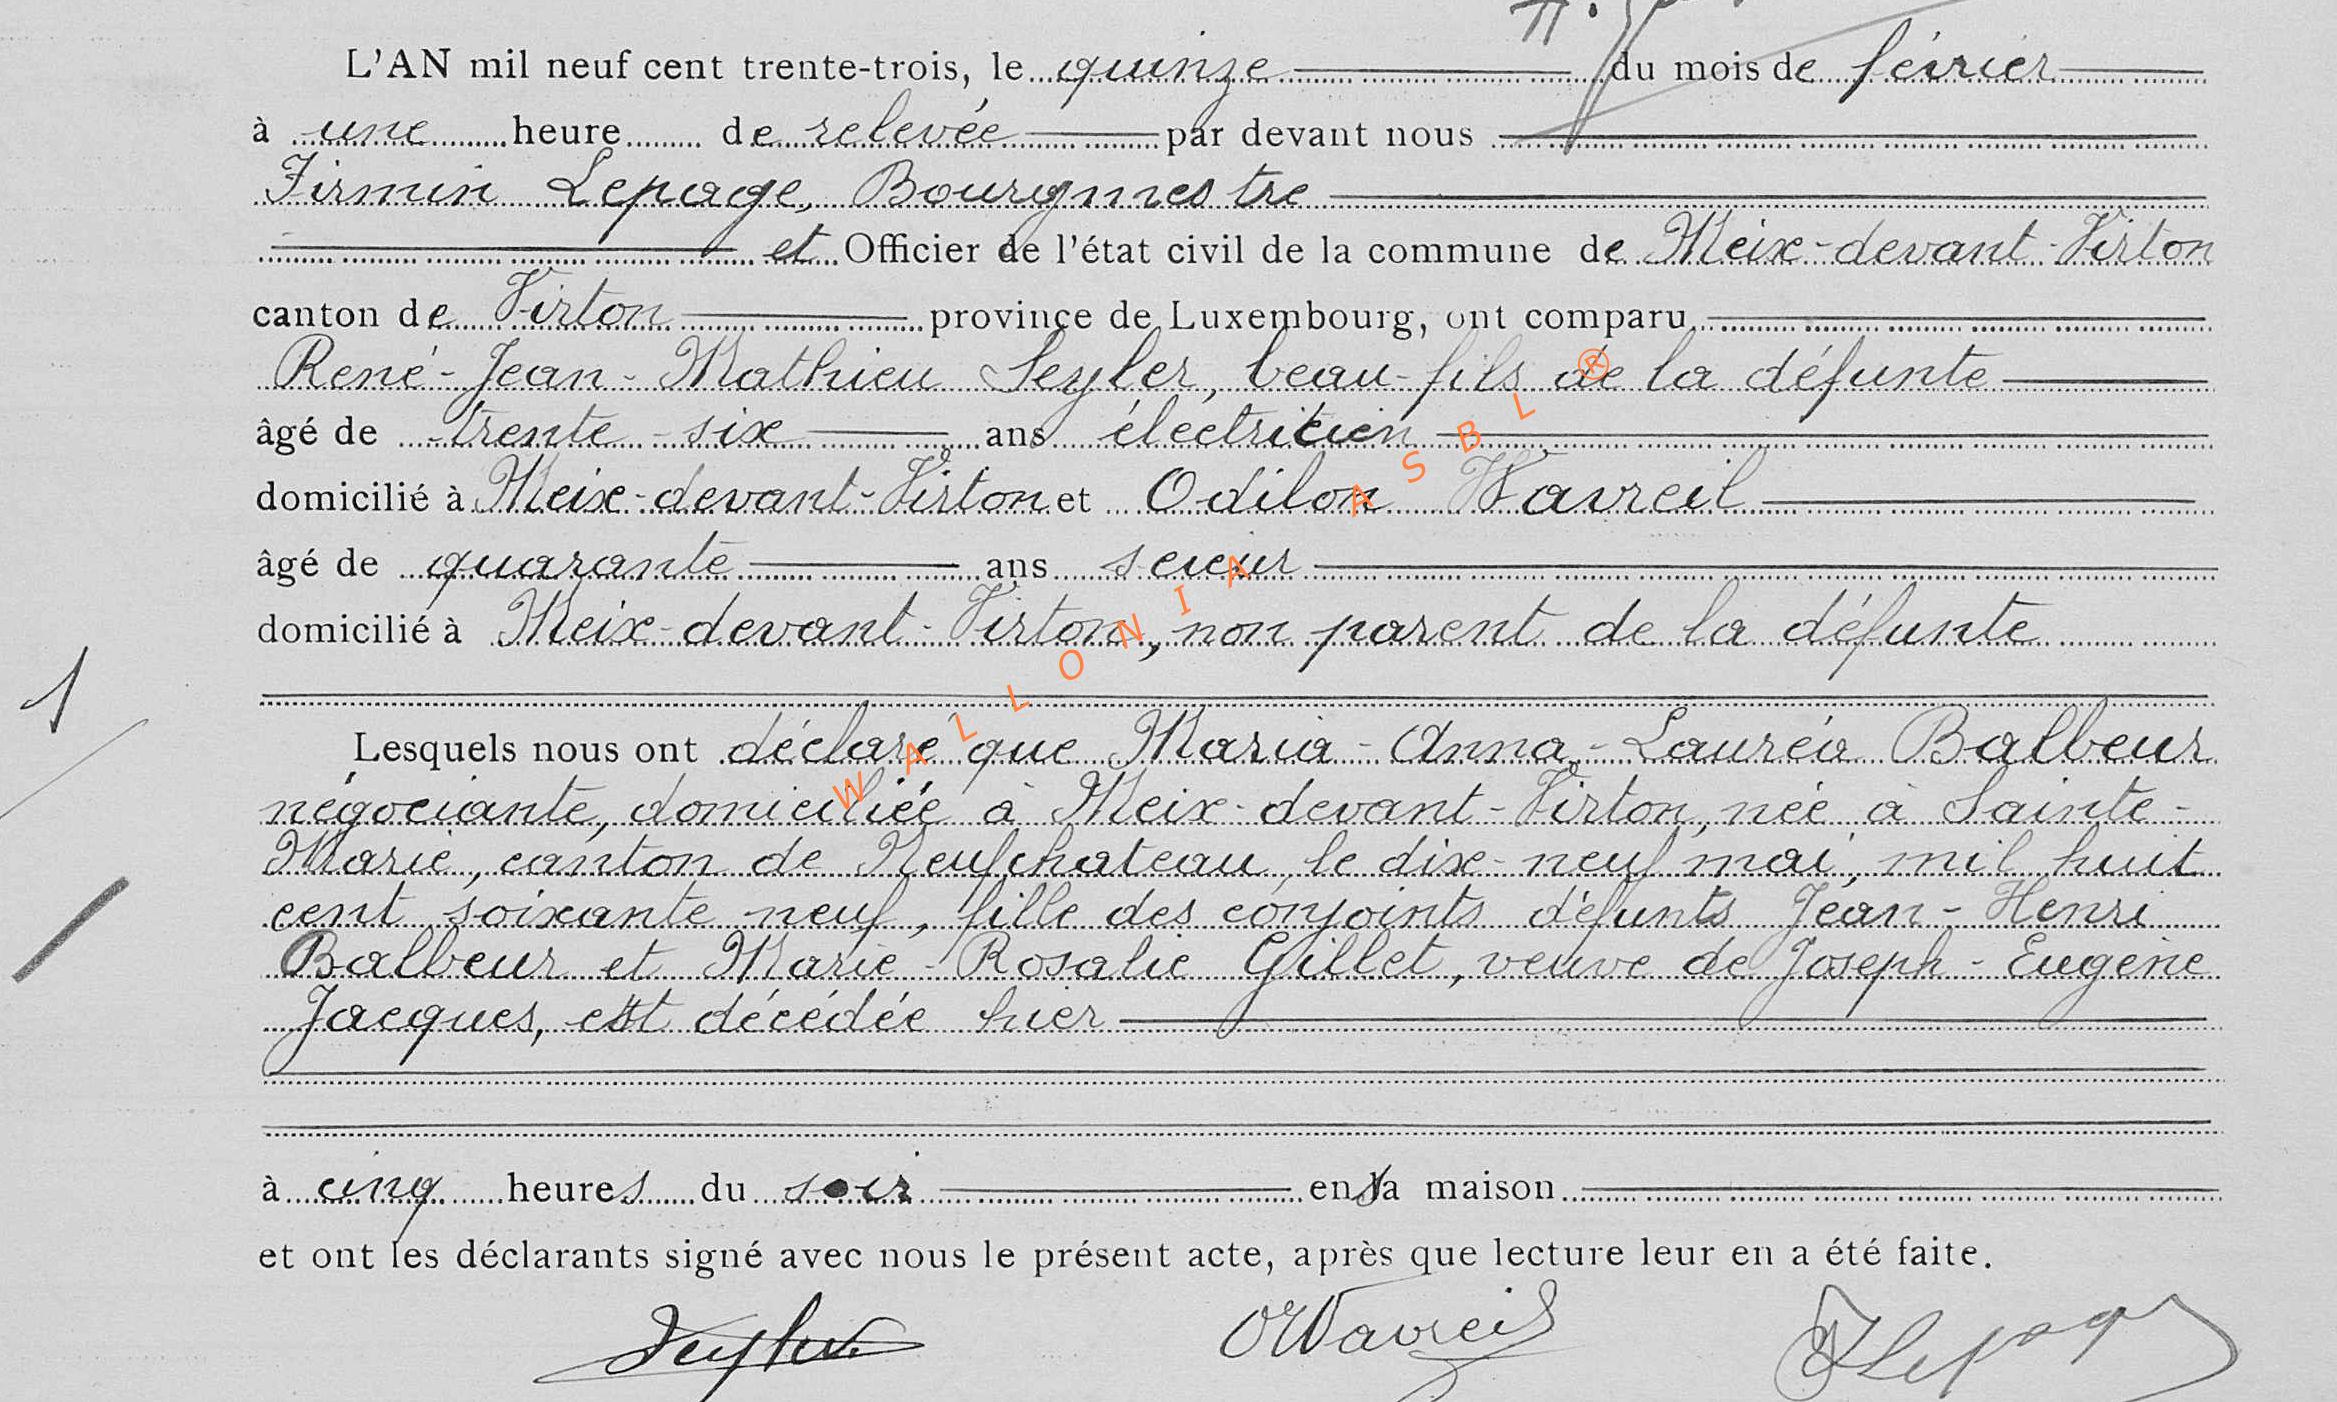 L'AN mil neuf cent trente-trois, le quinze du mois de février
à une heure de relevée par devant nous
Firmin Lepage, Bourgmestre
et Officier de l'état civil de la commune de Meix-devant-Virton
canton de Virton province de Luxembourg, ont comparu
René-Jean-Mathieu Seyler, beau-fils de la défunte
âgé de trente-six ans électricien
domicilié à Meix-devant-Virton et Odilon Wavreil
âgé de quarante ans scieur
domicilié à Meix-devant-Virton, non parent de la défunte
1
Lesquels nous ont déclaré que Maria-Anna-Lauréa Balbeur
négociante, domiciliée à Meix-devant-Virton, née à Sainte-
Marie, canton de Neufchateau, le dix-neuf mai mil huit
cent soixante neuf, fille des conjoints défunts Jean-Henri
Balbeur et Marie-Rosalie Gillet, veuve de Joseph-Eugène
Jacques, est décédée hier
à cinq heures du soir en sa maison
et ont les déclarants signé avec nous le présent acte, après que lecture leur en a été faite.
Seyler OWavreil FLepage
WALLONIA ASBL ®